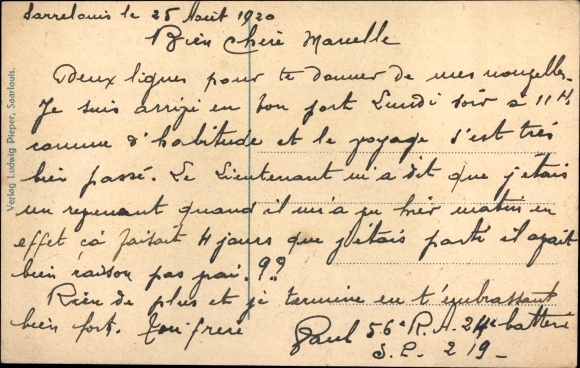 Sarrelouis le 25 Août 1920
Bien Chère Marcelle
Deux lignes pour te donner de mes nouvelles.
Je suis arrivé en bon port Lundi soir à 11 H.
comme d'habitude et le voyage s'est très
bien passé. Le Lieutenant m'a dit que j'étais
un revenant quand il m'a vu hier matin en
effet cà faisait 4 jours que j'étais parti il avait
bien raison pas vrai. ??
Rien de plus et je termine en t'embrassant
bien fort. Ton frère
Paul 56e R.A. 24e batterie
S.P. 219-
Verlag Ludwig Pieper, Saarlouis.